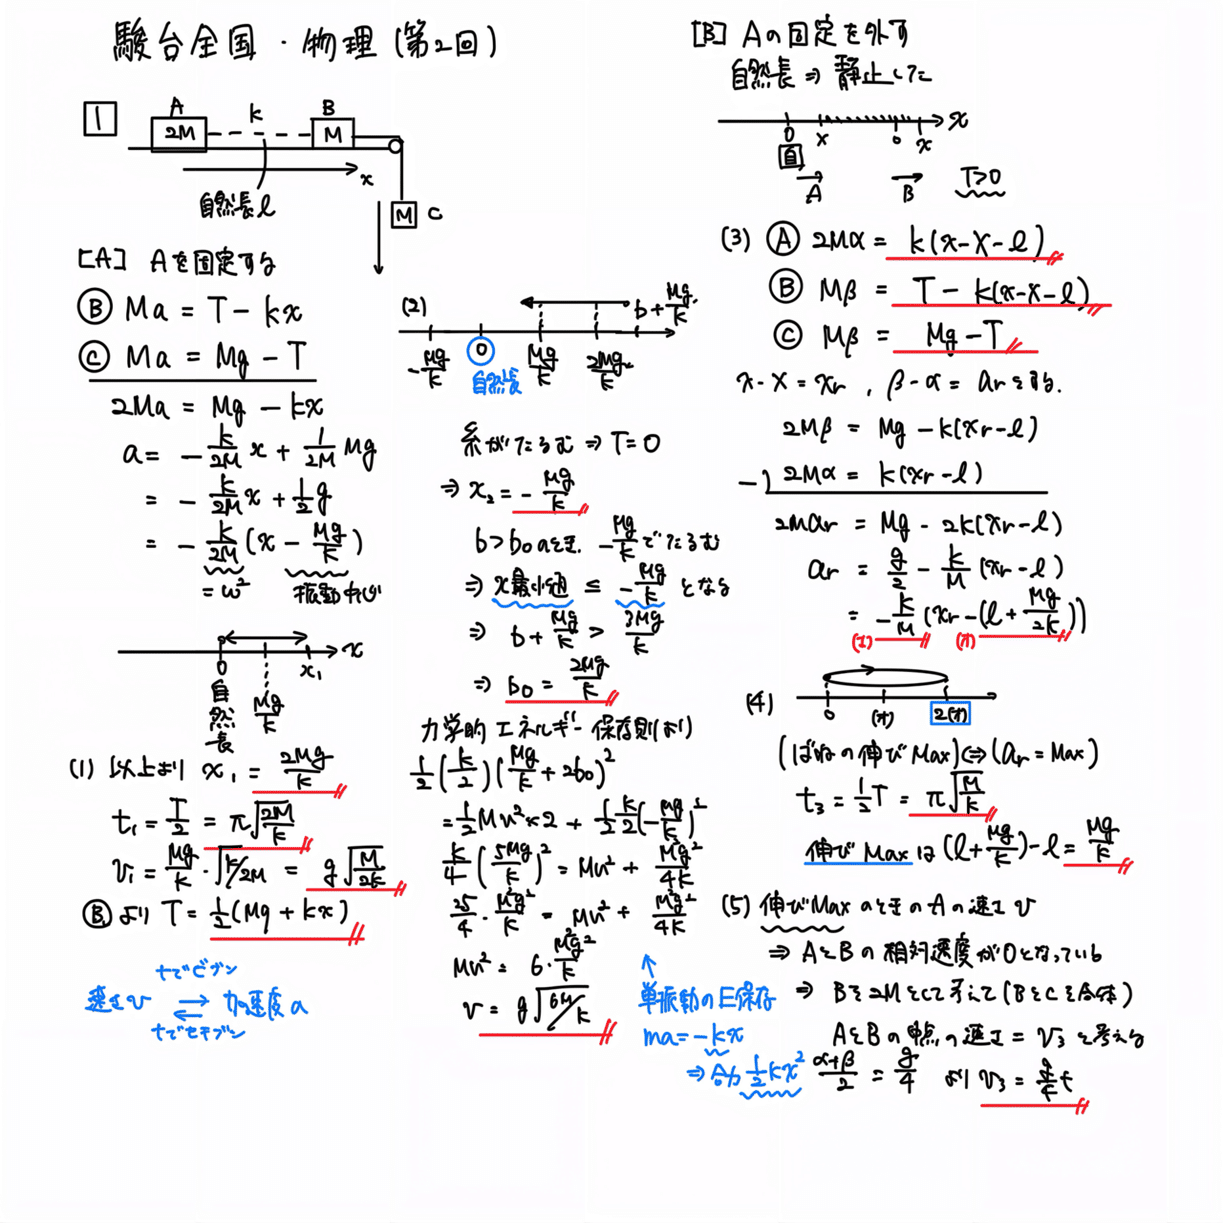 駿台全国・物理(第2回)
1
A
2M
k
B
M
x
自然長l
M C
[A] Aを固定する
Ⓑ Ma = T - kx
Ⓒ Ma = Mg - T
2Ma = Mg - kx
a = - k/2M x + 1/2M Mg
= - k/2M x + 1/2 g
= - k/2M (x - Mg/k)
= ω² 振動中心
0 x₁ x
自然長 Mg/k
(1) 以上より x₁ = 2Mg/k
t₁ = T/2 = π√(2M/k)
v₁ = Mg/k · √(k/2M) = g√(M/2k)
Ⓑより T = 1/2(Mg + kx)
tでビブン
速さv ⇄ 加速度a
tでセキブン
(2)
b + Mg/k
-Mg/k 0 Mg/k 2Mg/k
自然長
糸がたるむ ⇒ T=0
⇒ x₂ = - Mg/k
b > b₀のとき. -Mg/kでたるむ
⇒ x最小値 ≦ -Mg/k となる
⇒ b + Mg/k > 3Mg/k
⇒ b₀ = 2Mg/k
力学的エネルギー保存則より
1/2 (k/2) (Mg/k + 2b₀)²
= 1/2 Mv² × 2 + 1/2 k/2 (-Mg/k)²
k/4 (5Mg/k)² = Mv² + M²g²/4k
25/4 · M²g²/k = Mv² + M²g²/4k
Mv² = 6 · M²g²/k
v = g√(6M/k)
↑
単振動のE保存
ma = -kx
⇒ 1/2 kx²
[B] Aの固定を外す
自然長 ⇒ 静止した
0 X 0 x x
自
A B T>0
(3) Ⓐ 2Mα = k(x-X-l)
Ⓑ Mβ = T - k(x-X-l)
Ⓒ Mβ = Mg - T
x - X = xr , β - α = ar とする.
2Mβ = Mg - k(xr - l)
-) 2Mα = k(xr - l)
2Mar = Mg - 2k(xr - l)
ar = g/2 - k/M (xr - l)
= - k/M (xr - (l + Mg/2k))
(エ) (オ)
(4)
0 (オ) 2(オ)
(ばねの伸びMax)⇔(ar = Max)
t₃ = 1/2 T = π√(M/k)
伸びMaxは (l + Mg/k) - l = Mg/k
(5) 伸びMaxのときのAの速さv
⇒ AとBの相対速度が0となっている
⇒ Bを2Mとして考えて(BとCを合体)
AとBの中点の速さ = v₃ と考える
α+β/2 = g/4 より v₃ = g/4 t